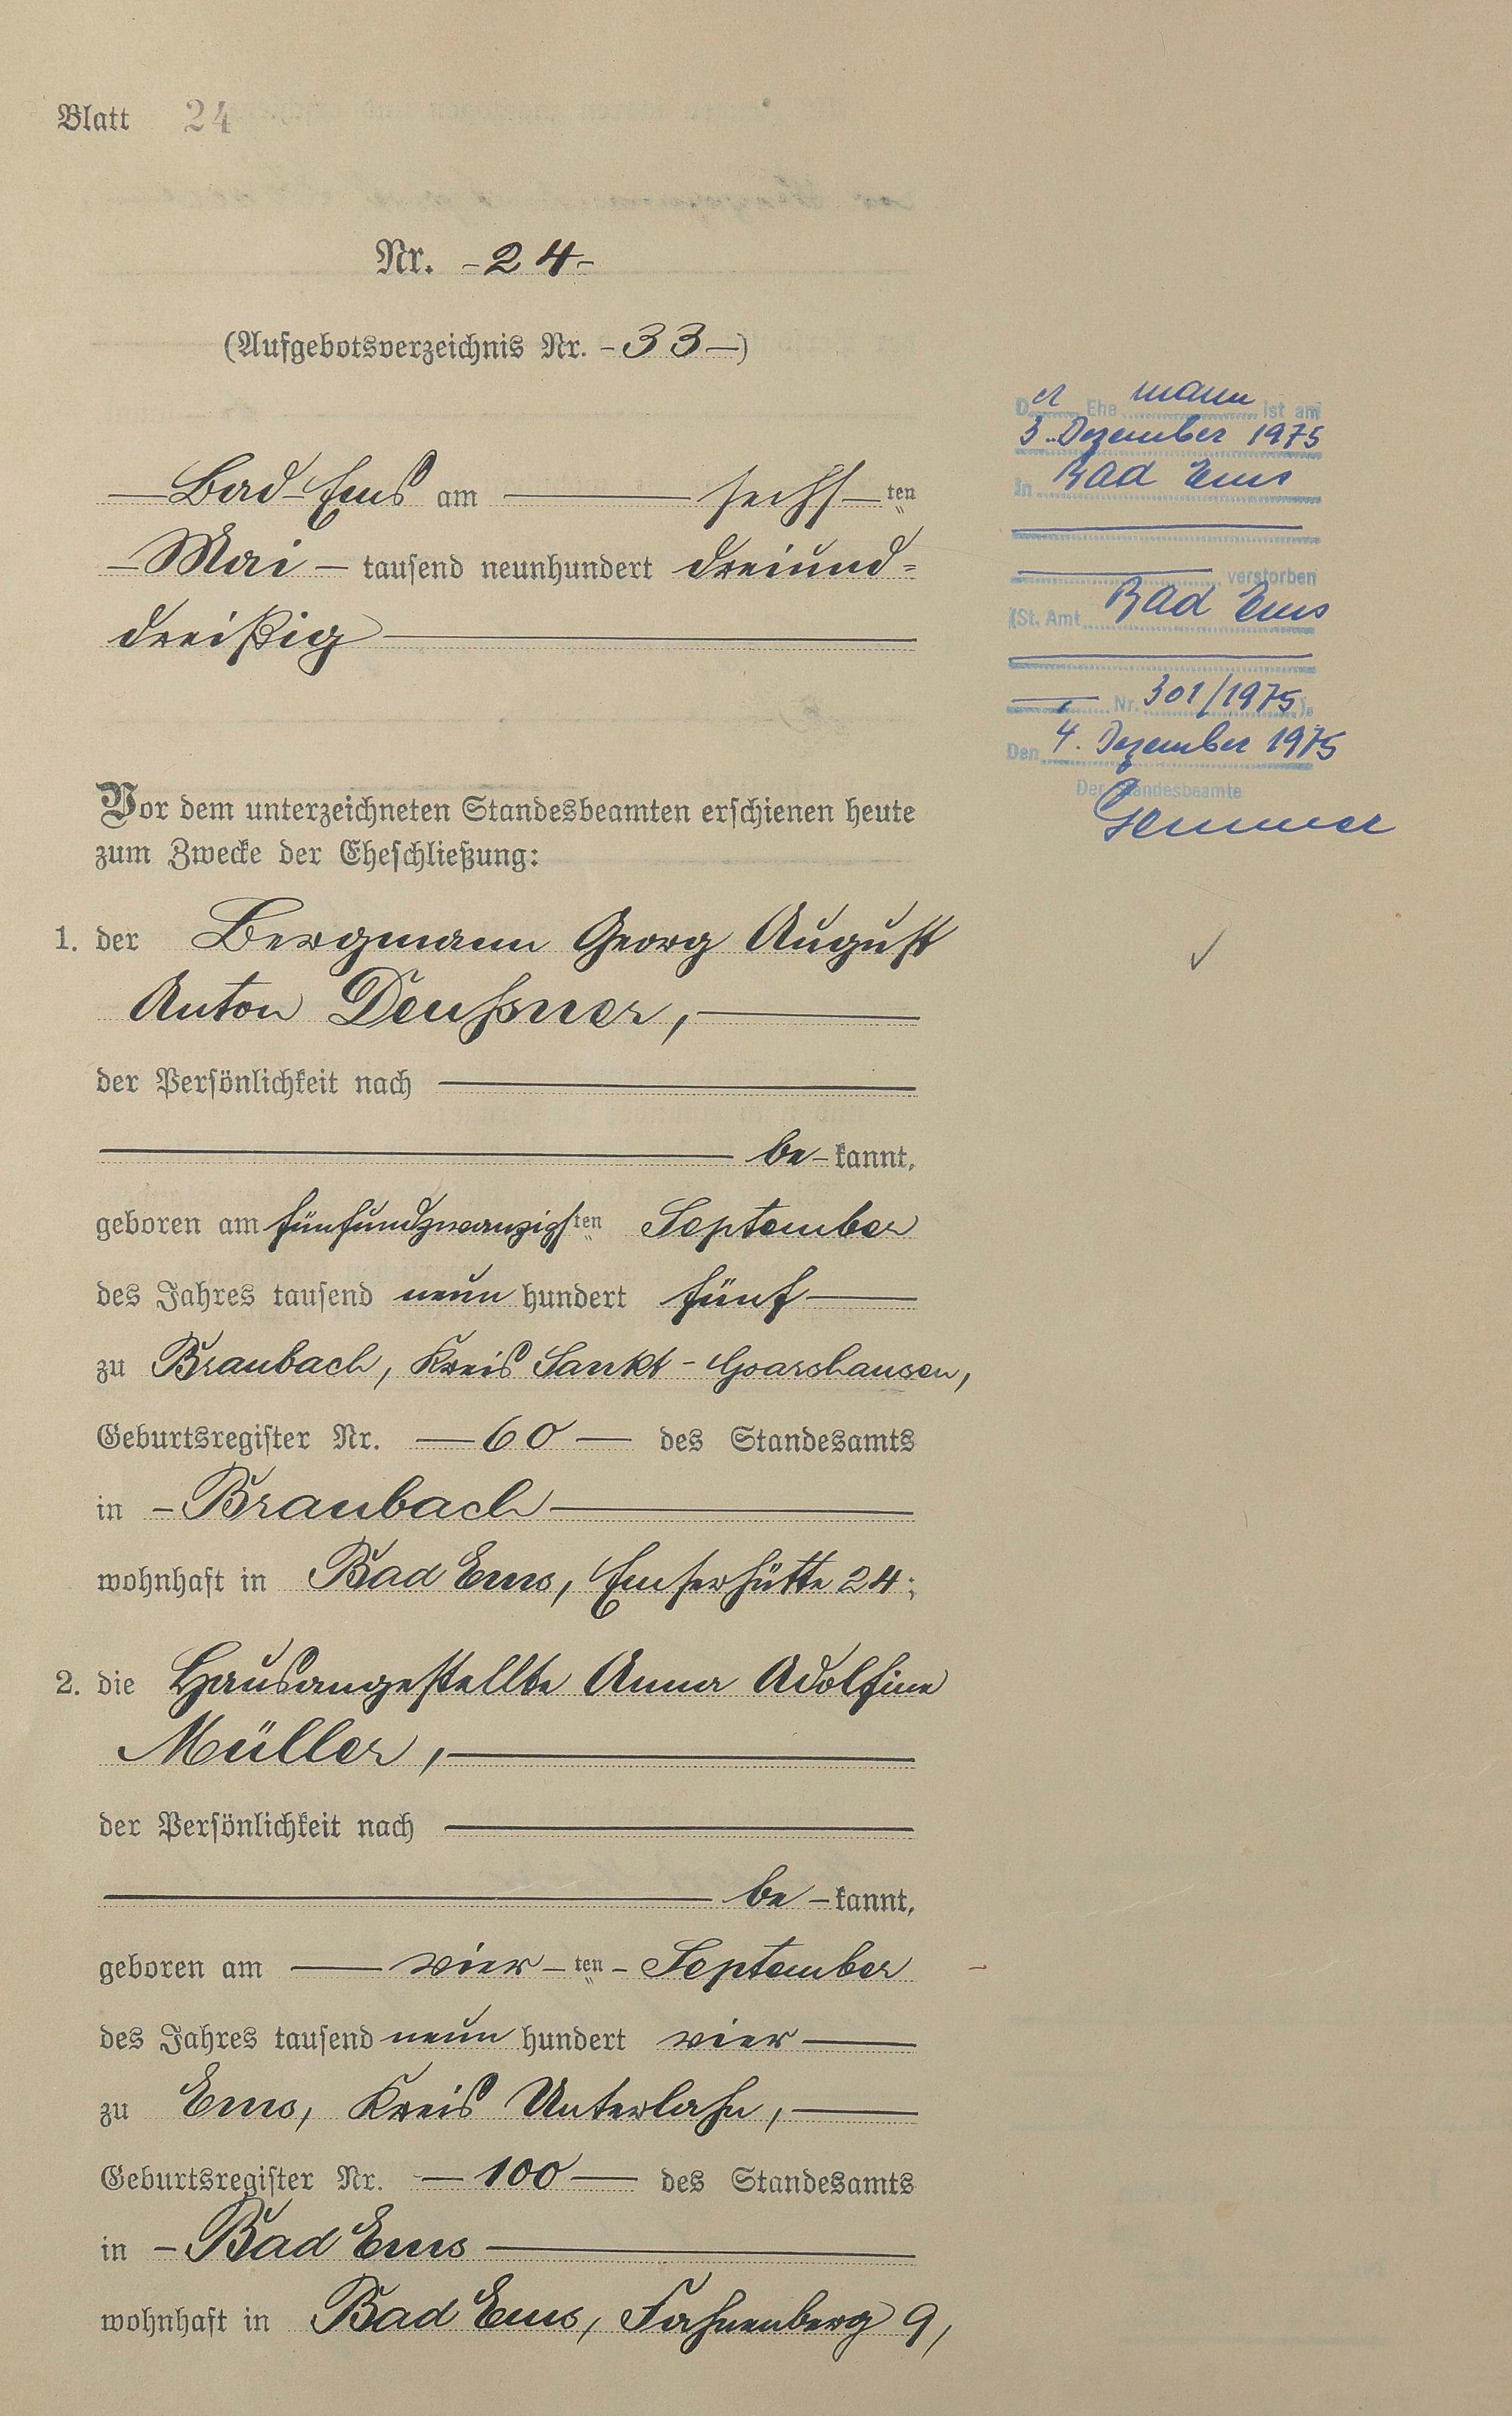 Blatt 24
Nr. -24-
(Aufgebotsverzeichnis Nr. -33-)
Bad Ems am sechsten
Mai tausend neunhundert dreiund=
dreißig
Vor dem unterzeichneten Standesbeamten erschienen heute
zum Zwecke der Eheschließung:
1. der Bergmann Georg August
Anton Deußner,
der Persönlichkeit nach
be-kannt,
geboren am fünfundzwanzigsten September
des Jahres tausend neun hundert fünf
zu Braubach, Kreis Sankt-Goarshausen,
Geburtsregister Nr. 60 des Standesamts
in Braubach
wohnhaft in Bad Ems, Emserhütte 24;
2. die Hausangestellte Anna Adolfine
Müller,
der Persönlichkeit nach
be-kannt,
geboren am vierten September
des Jahres tausend neun hundert vier
zu Ems, Kreis Unterlahn,
Geburtsregister Nr. 100 des Standesamts
in Bad Ems
wohnhaft in Bad Ems, Fahnenberg 9,
Der Ehemann ist am
3. Dezember 1975
in Bad Ems
verstorben
(St. Amt Bad Ems
Nr. 301/1975).
Den 4. Dezember 1975
Der Standesbeamte